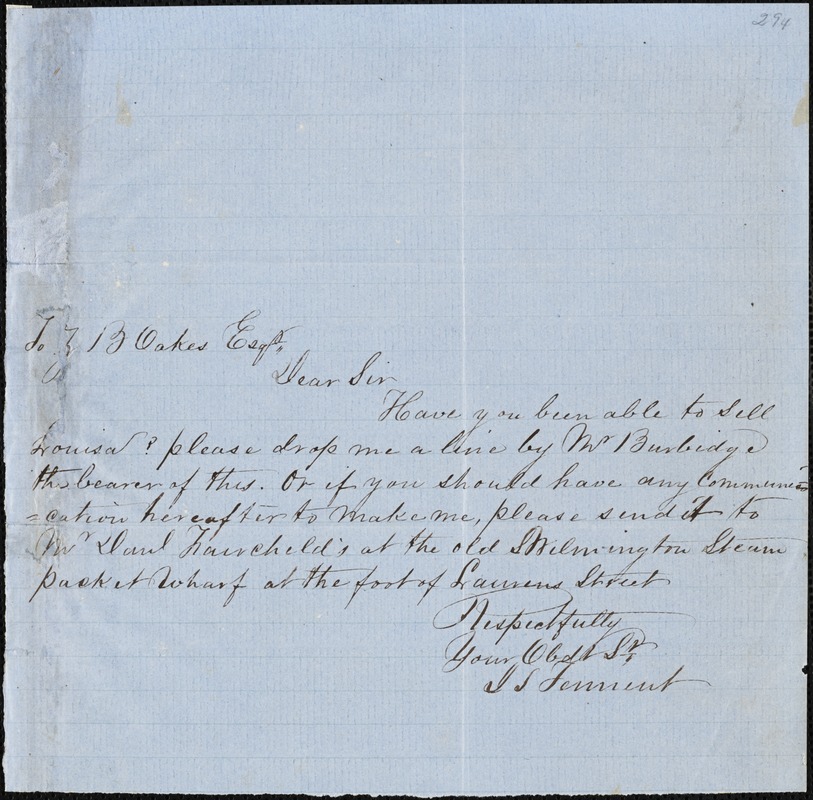 294
To Z B Oakes Esqr.,
Dear Sir
Have you been able to Sell
Louisa? please drop me a line by Mr Burbidge
the bearer of this. Or if you should have any communi=
=cation hereafter to make me, please send it to
Mr Danl Fairchild's at the old Wilmington Steam
packet Wharf at the foot of Laurens Street
Respectfully
Your Obdt St,
J S Tennent